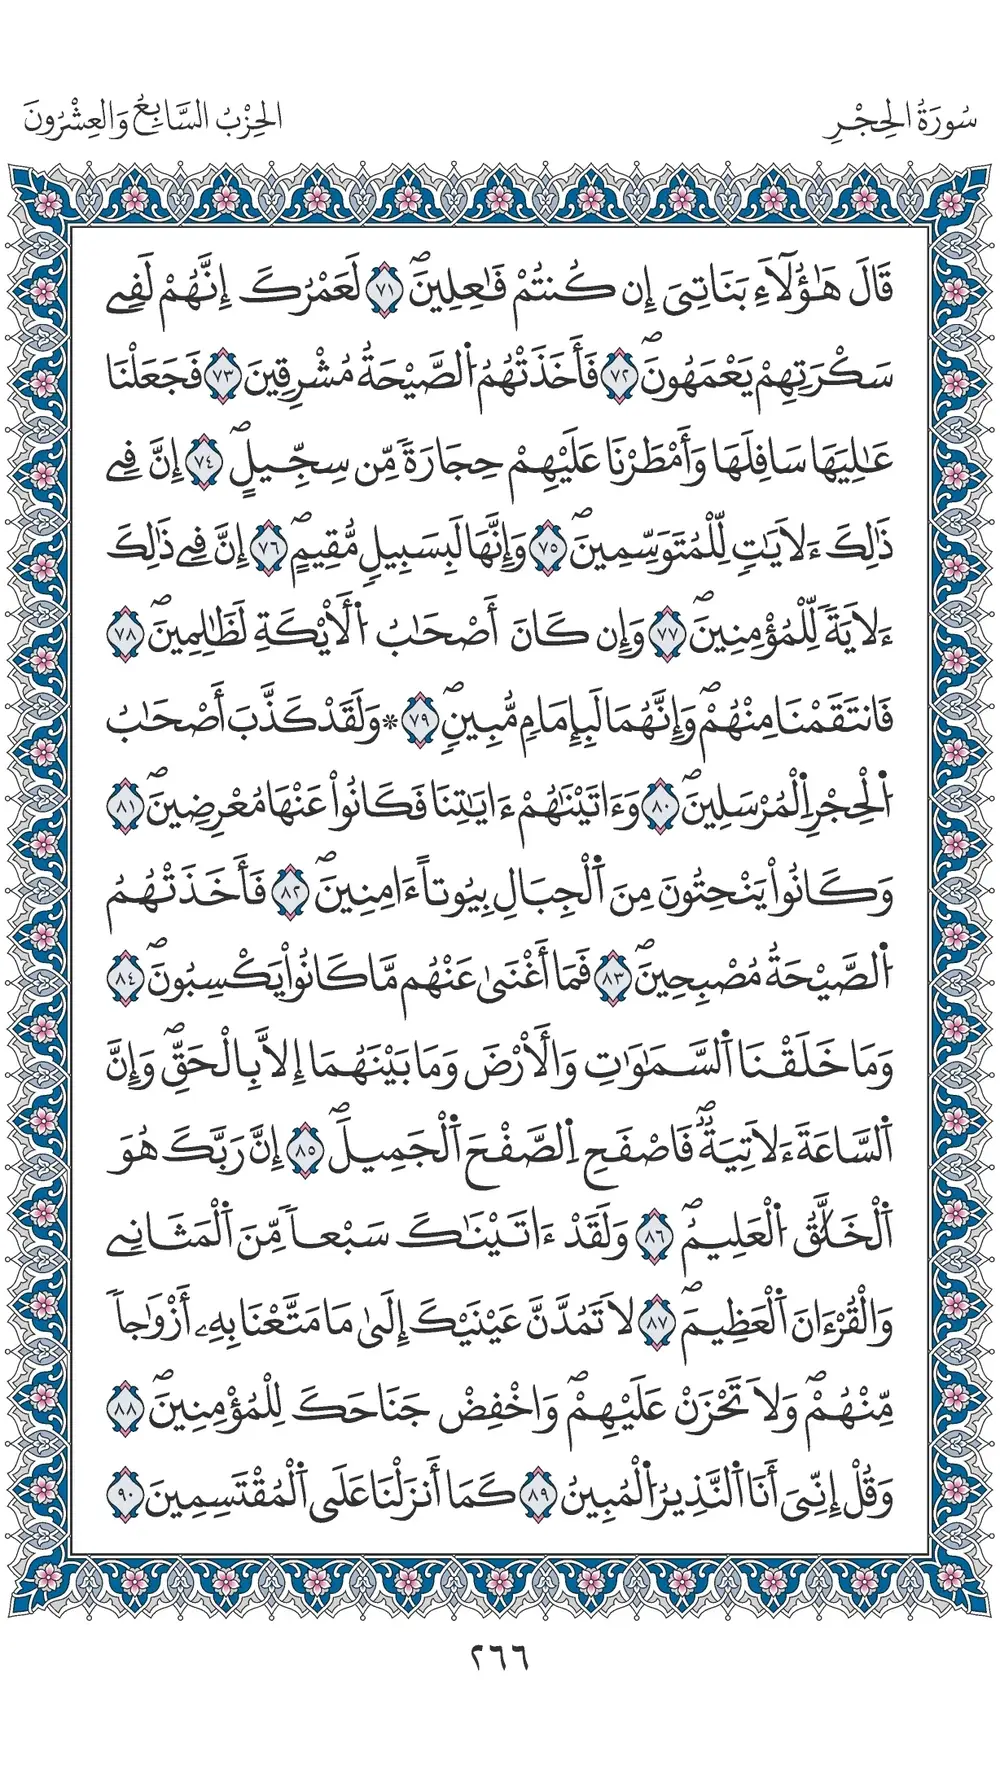 سُورَةُ الحِجْرِ
الحِزْبُ السَّابِعُ وَالعِشْرُونَ
قَالَ هَٰٓؤُلَآءِ بَنَاتِيَ إِن كُنتُمْ فَٰعِلِينَۖ ٧١ لَعَمْرُكَ إِنَّهُمْ لَفِے
سَكْرَتِهِمْ يَعْمَهُونَۖ ٧٢ فَأَخَذَتْهُمُ اُلصَّيْحَةُ مُشْرِقِينَ ٧٣ فَجَعَلْنَا
عَٰلِيَهَا سَافِلَهَا وَأَمْطَرْنَا عَلَيْهِمْ حِجَارَةٗ مِّن سِجِّيلٍۖ ٧٤ إِنَّ فِے
ذَٰلِكَ ءَلَايَٰتٖ لِّلْمُتَوَسِّمِينَۖ ٧٥ وَإِنَّهَا لَبِسَبِيلٖ مُّقِيمٍۖ ٧٦ إِنَّ فِے ذَٰلِكَ
ءَلَايَةٗ لِّلْمُؤْمِنِينَۖ ٧٧ وَإِن كَانَ أَصْحَٰبُ اُلَايْكَةِ لَظَٰلِمِينَۖ ٧٨
فَانتَقَمْنَا مِنْهُمْۖ وَإِنَّهُمَا لَبِإِمَامٖ مُّبِينٖۖ ٧٩ * وَلَقَدْ كَذَّبَ أَصْحَٰبُ
اُلْحِجْرِ اِلْمُرْسَلِينَۖ ٨٠ وَءَاتَيْنَٰهُمْ ءَايَٰتِنَا فَكَانُواْ عَنْهَا مُعْرِضِينَۖ ٨١
وَكَانُواْ يَنْحِتُونَ مِنَ اَلْجِبَالِ بِيُوتاً ءَامِنِينَۖ ٨٢ فَأَخَذَتْهُمُ
اُلصَّيْحَةُ مُصْبِحِينَۖ ٨٣ فَمَا أَغْنَىٰ عَنْهُم مَّا كَانُواْ يَكْسِبُونَۖ ٨٤
وَمَا خَلَقْنَا اَلسَّمَٰوَٰتِ وَالَارْضَ وَمَا بَيْنَهُمَا إِلَّا بِالْحَقِّۖ وَإِنَّ
اَلسَّاعَةَ ءَلَاتِيَةٞۖ فَاصْفَحِ اِلصَّفْحَ اَلْجَمِيلَۖ ٨٥ إِنَّ رَبَّكَ هُوَ
اَلْخَلَّٰقُ اُلْعَلِيمُۖ ٨٦ وَلَقَدْ ءَاتَيْنَٰكَ سَبْعاٗ مِّنَ اَلْمَثَانِے
وَالْقُرْءَانَ اَلْعَظِيمَۖ ٨٧ لَا تَمُدَّنَّ عَيْنَيْكَ إِلَىٰ مَا مَتَّعْنَا بِهِۦ أَزْوَٰجاٗ
مِّنْهُمْۖ وَلَا تَحْزَنْ عَلَيْهِمْۖ وَاخْفِضْ جَنَاحَكَ لِلْمُؤْمِنِينَۖ ٨٨
وَقُلْ إِنِّيَ أَنَا اَلنَّذِيرُ اُلْمُبِينُ ٨٩ كَمَا أَنزَلْنَا عَلَى اَلْمُقْتَسِمِينَ ٩٠
٢٦٦